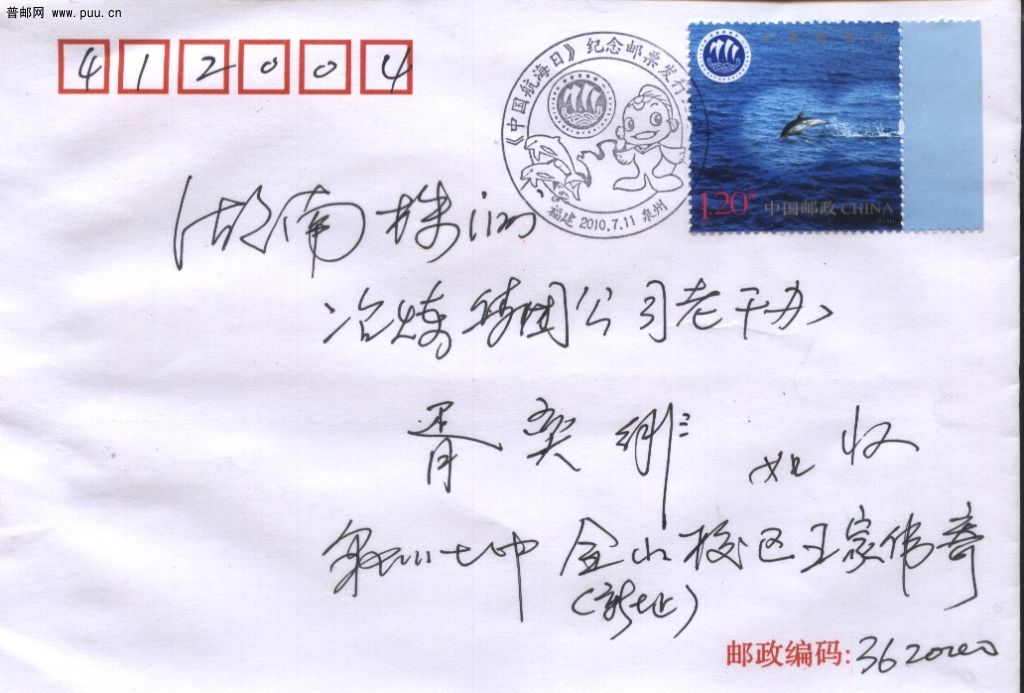 普邮网 www.puu.cn
412004
《中国航海日》纪念邮票发行
福建 2010.7.11 泉州
1.20元 中国邮政 CHINA
湖南株洲
冶炼集团公司老干办
胥奕 收
泉州七中 金山校区王家伟寄
(新址)
邮政编码: 362000